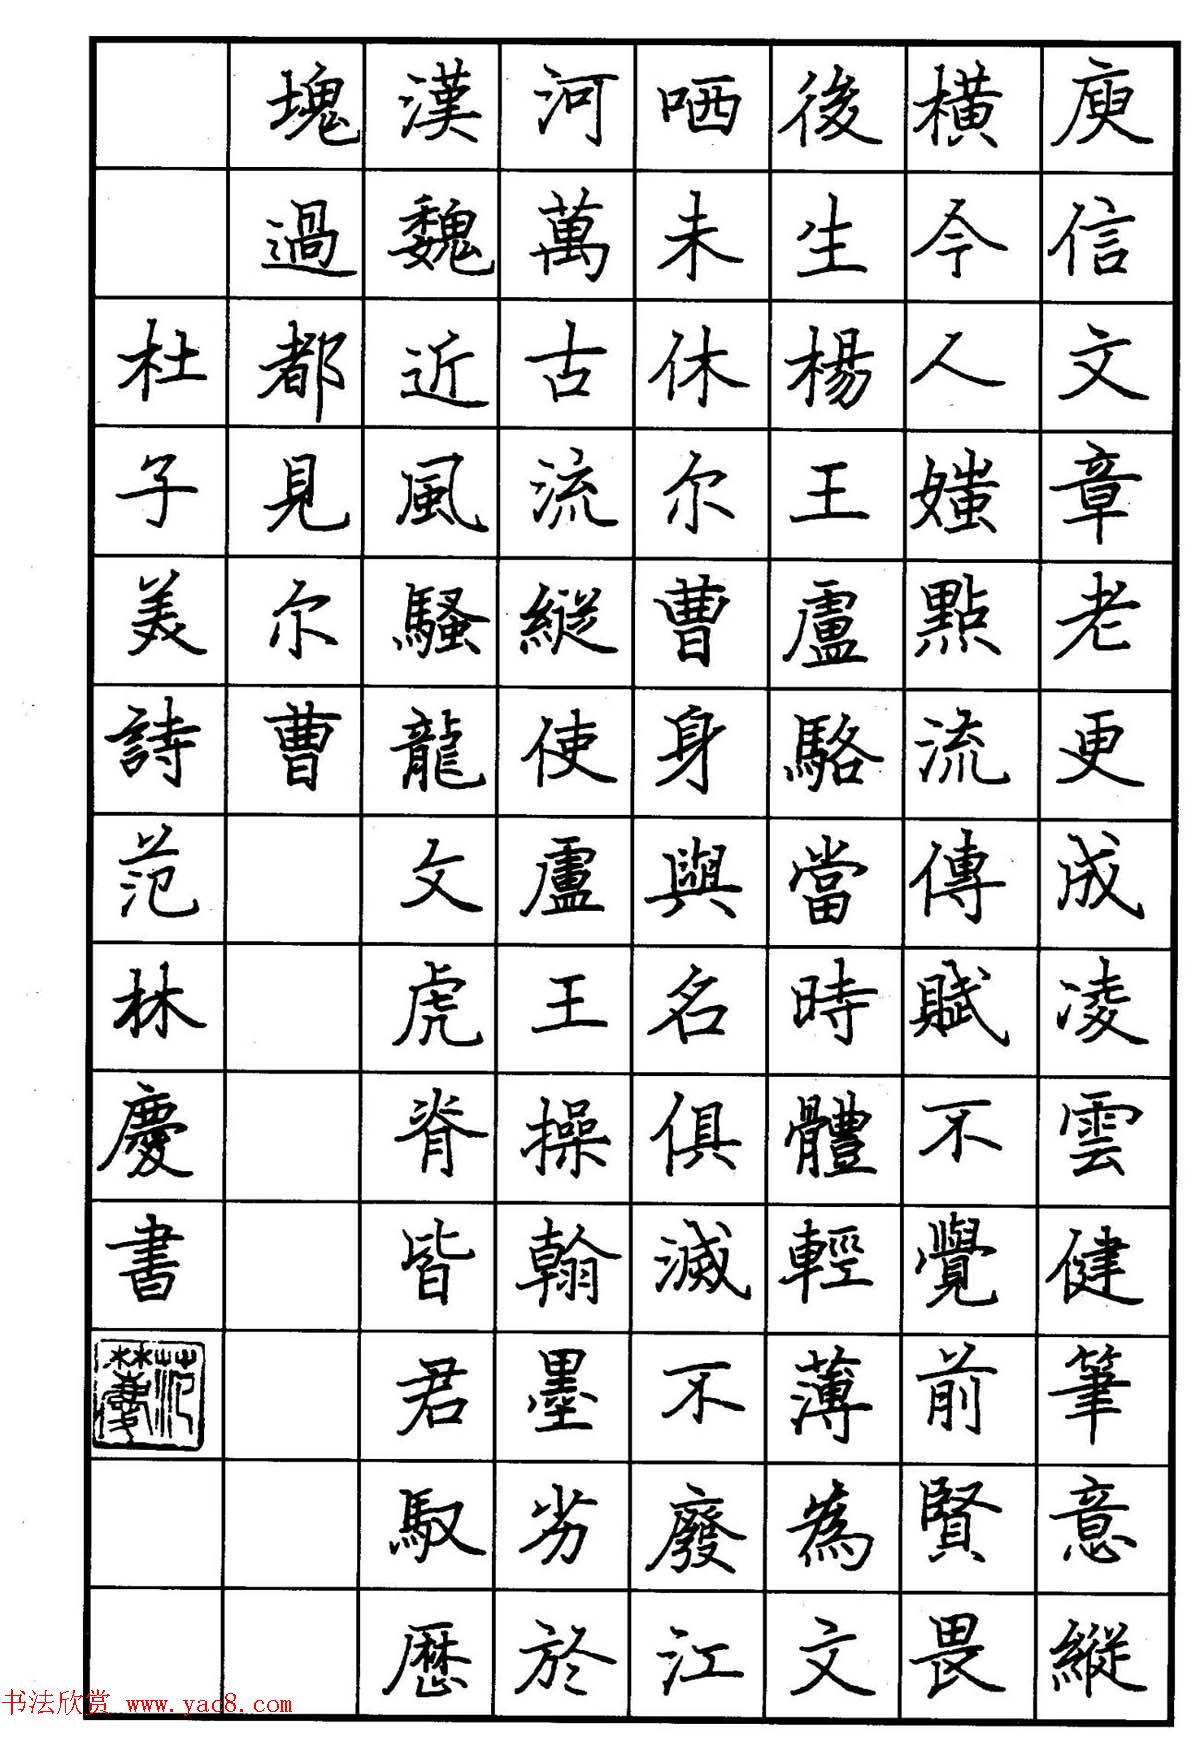 庾信文章老更成凌雲健筆意縱
橫今人媸點流傳賦不覺前賢畏
後生楊王盧駱當時體輕薄為文
哂未休尔曹身與名俱滅不廢江
河萬古流縱使盧王操翰墨劣於
漢魏近風騷龍文虎脊皆君馭歷
塊過都見尔曹
杜子美詩范林慶書
范林慶
书法欣赏 www.yac8.com